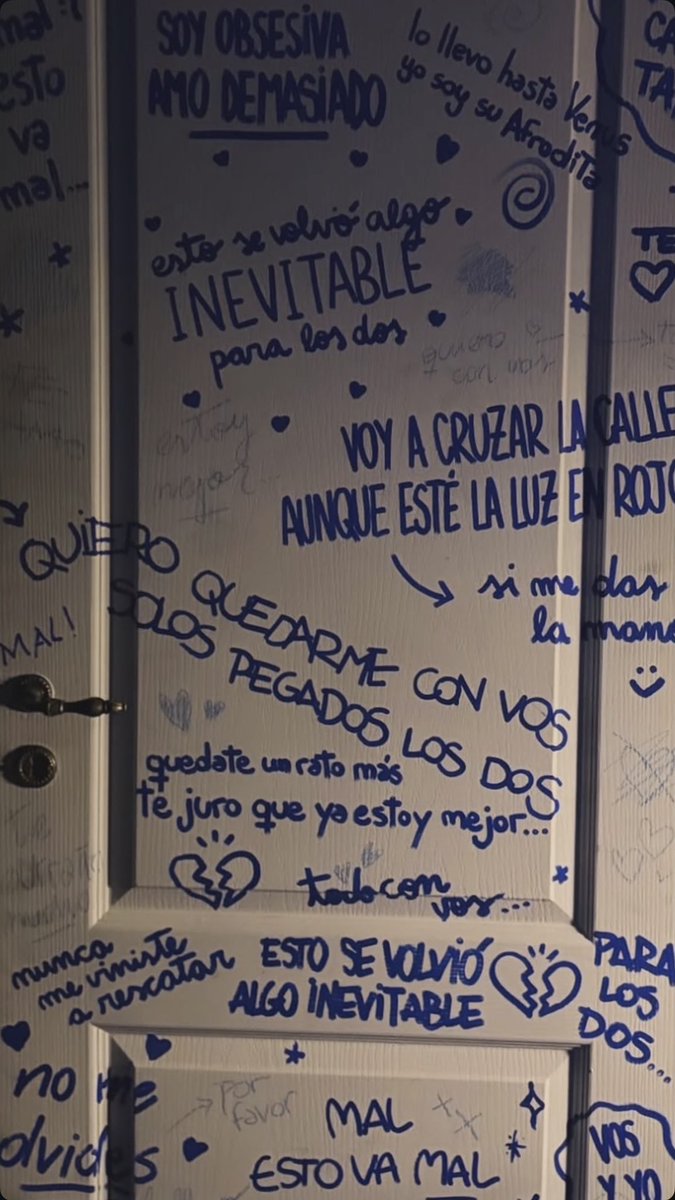 mal :(
esto
va
mal...
SOY OBSESIVA
AMO DEMASIADO
lo llevo hasta Venus
yo soy su Afrodita
CA
TA
esto se volvió algo
INEVITABLE
para los dos
TE
quiero
con vos
estoy
mejor...
VOY A CRUZAR LA CALLE
AUNQUE ESTÉ LA LUZ EN ROJO
si me das
la mano
QUIERO QUEDARME CON VOS
SOLOS PEGADOS LOS DOS
MAL!
quedate un rato más
te juro que ya estoy mejor...
todo con
vos...
nunca
me viniste
a rescatar
ESTO SE VOLVIÓ
ALGO INEVITABLE
PARA
LOS
DOS...
no me
olvides
por
favor
MAL
ESTO VA MAL
VOS
Y YO